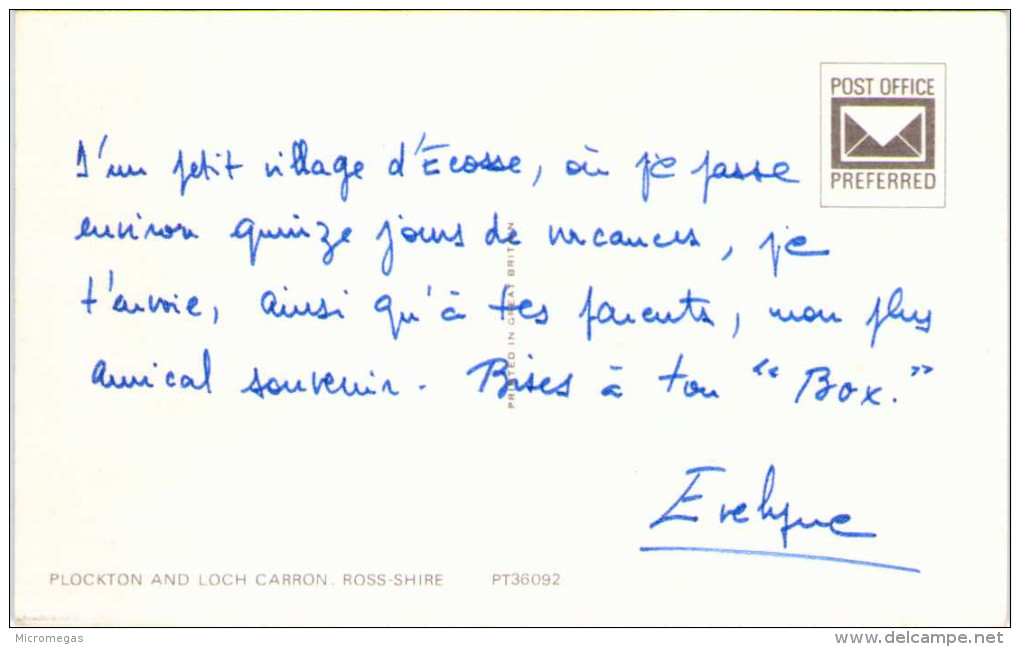 POST OFFICE
PREFERRED
D'un petit village d'Ecosse, où je passe
environ quinze jours de vacances, je
t'envoie, ainsi qu'à tes parents, mon plus
amical souvenir. Bises à ton "Box."
Evelyne
PRINTED IN GREAT BRITAIN
PLOCKTON AND LOCH CARRON, ROSS-SHIRE PT36092
Micromegas
www.delcampe.net